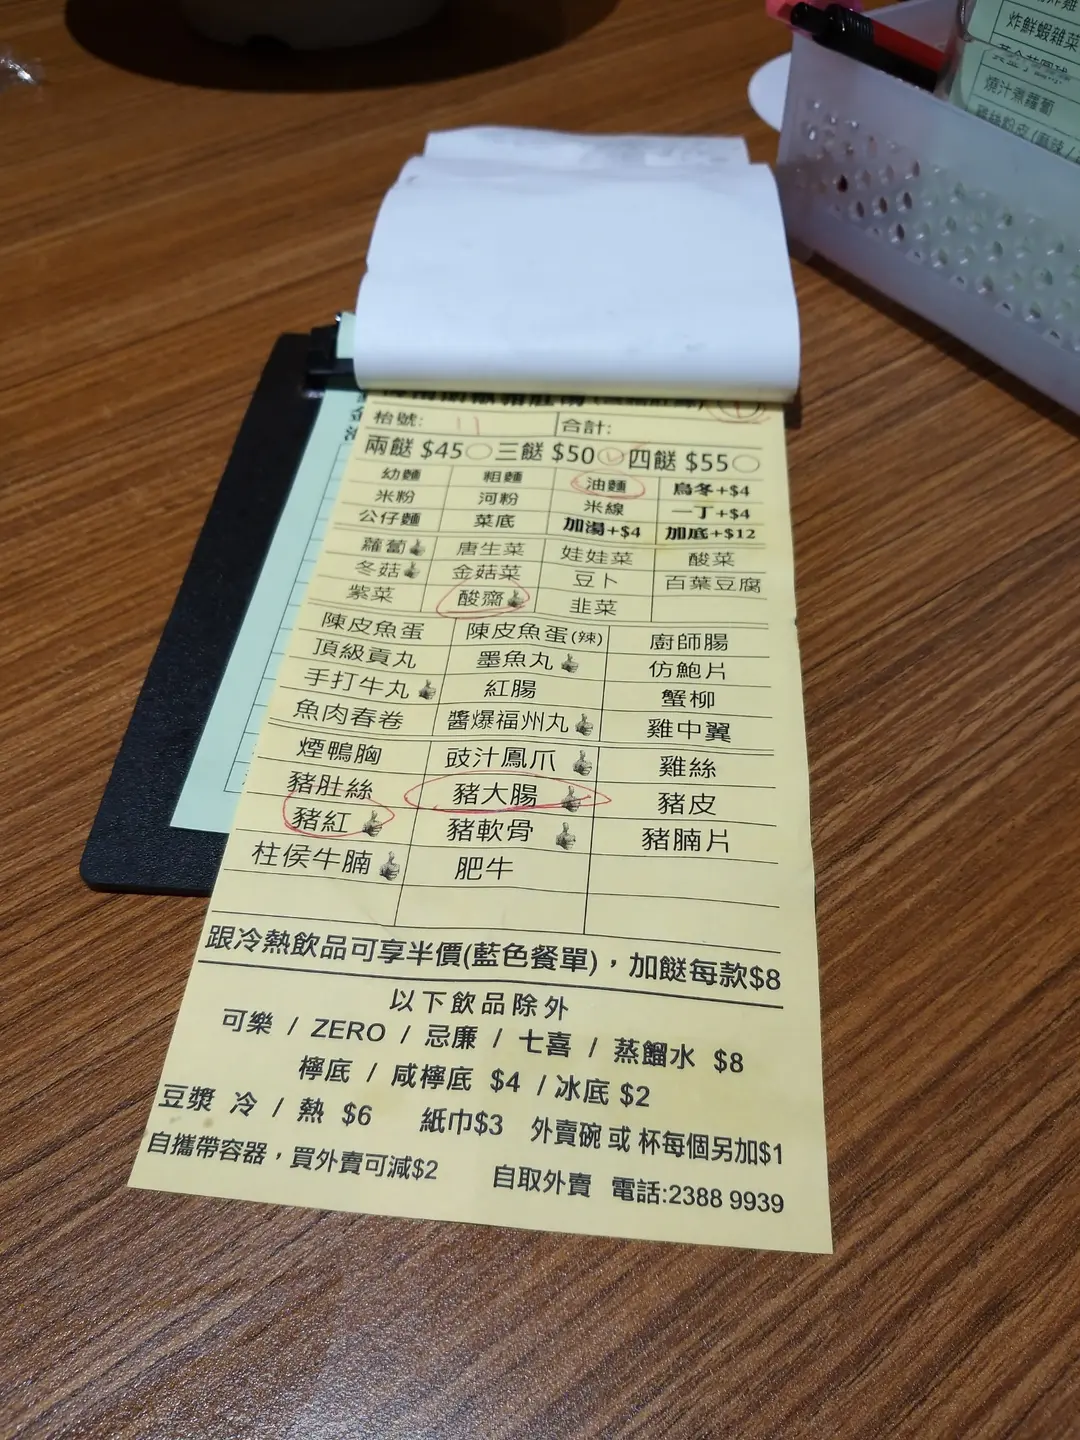 枱號: 11 合計:
兩餸 $45 三餸 $50 四餸 $55
幼麵 粗麵 油麵 烏冬+$4
米粉 河粉 米線 一丁+$4
公仔麵 菜底 加湯+$4 加底+$12
蘿蔔 唐生菜 娃娃菜 酸菜
冬菇 金菇菜 豆卜 百葉豆腐
紫菜 酸齋 韭菜
陳皮魚蛋 陳皮魚蛋(辣) 廚師腸
頂級貢丸 墨魚丸 仿鮑片
手打牛丸 紅腸 蟹柳
魚肉春卷 醬爆福州丸 雞中翼
煙鴨胸 豉汁鳳爪 雞絲
豬肚絲 豬大腸 豬皮
豬紅 豬軟骨 豬腩片
柱侯牛腩 肥牛
跟冷熱飲品可享半價(藍色餐單)，加餸每款$8
以下飲品除外
可樂 / ZERO / 忌廉 / 七喜 / 蒸餾水 $8
檸底 / 咸檸底 $4 / 冰底 $2
豆漿 冷 / 熱 $6 紙巾$3 外賣碗 或 杯每個另加$1
自攜帶容器，買外賣可減$2 自取外賣 電話:2388 9939
炸鮮蝦雜菜
燒汁煮蘿蔔